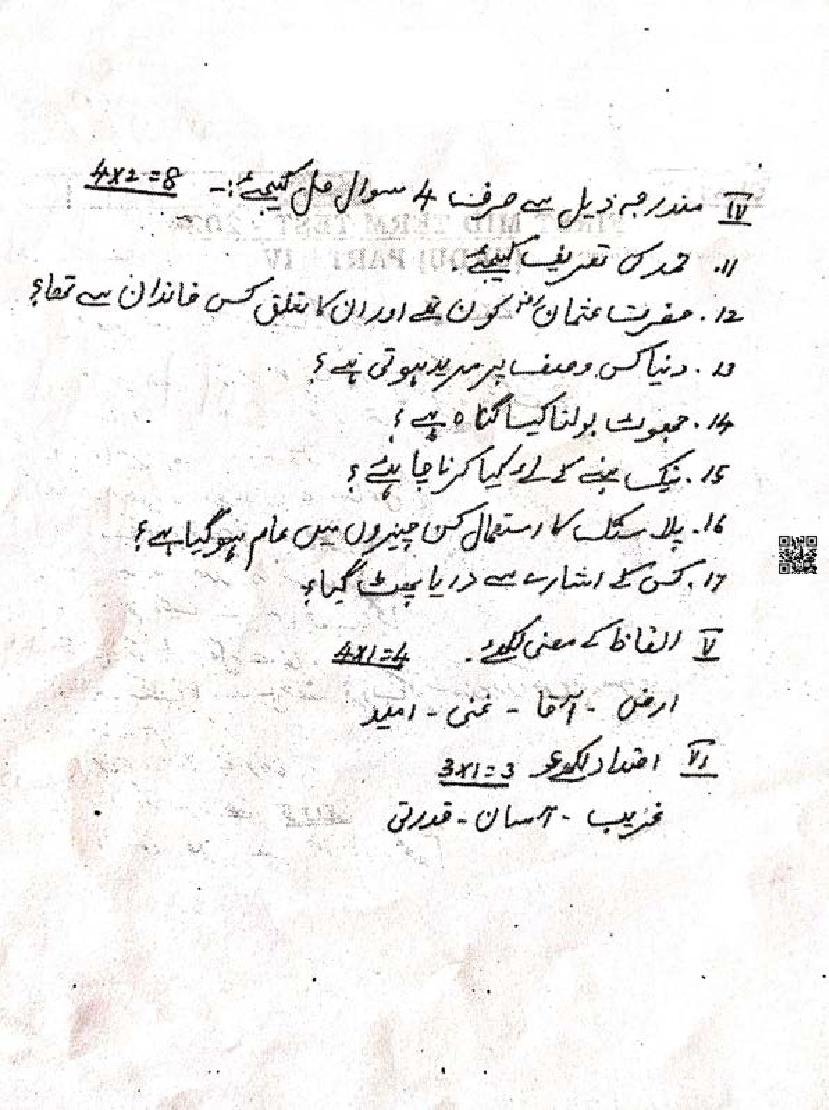 IV مندرجہ ذیل سے صرف 4 سوال حل کیجئے:- 4x2=8
11. حمد کی تعریف کیجئے.
12. حضرت عثمانؓ کون تھے اور ان کا تعلق کس خاندان سے تھا؟
13. دنیا کس وصف پر مرید ہوتی ہے؟
14. جھوٹ بولنا کیسا گناہ ہے؟
15. نیک بننے کے لئے کیا کرنا چاہئے؟
16. پلاسٹک کا استعمال کن چیزوں میں عام ہو گیا ہے؟
17. کس کے اشارے سے دریا پھٹ گیا؟
V الفاظ کے معنی لکھئے. 4x1=4
ارض - آقا - غنی - امید
VI اضداد لکھئے 3x1=3
غریب - آسان - قدرتی